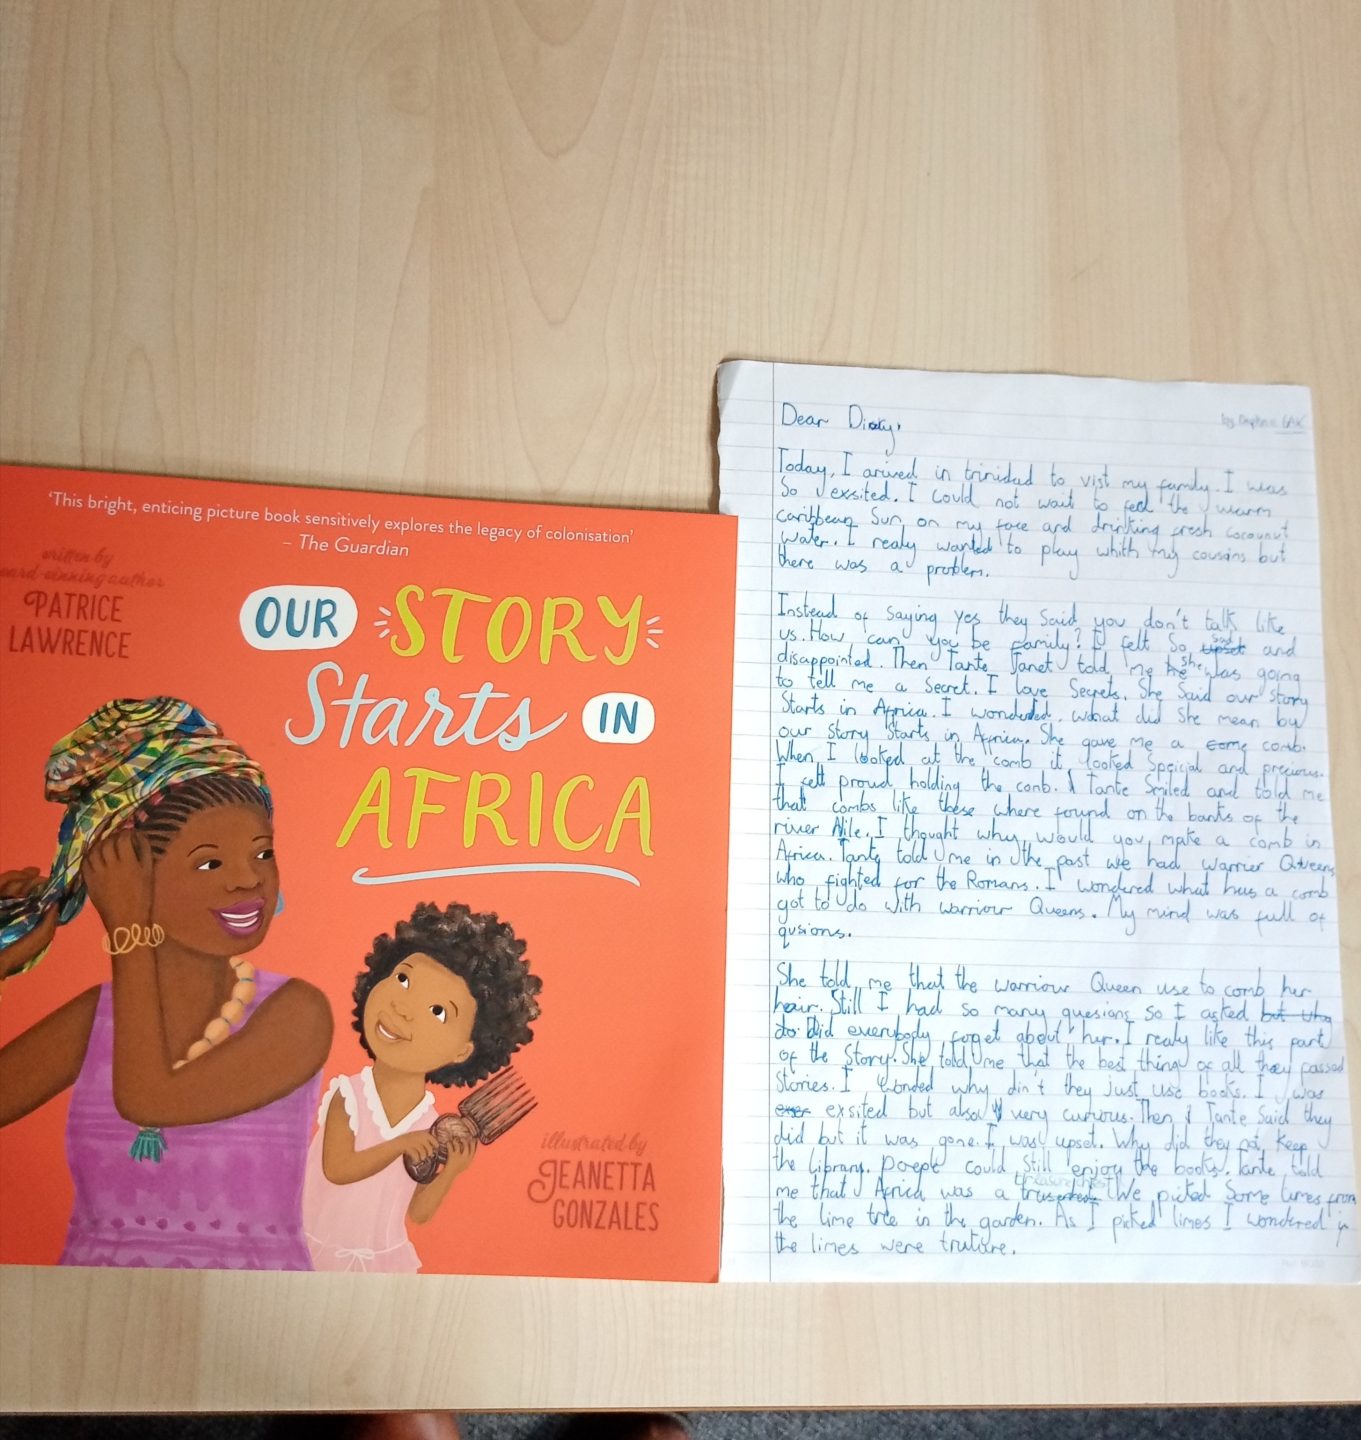 'This bright, enticing picture book sensitively explores the legacy of colonisation'
– The Guardian
written by
award-winning author
PATRICE
LAWRENCE
OUR STORY
Starts IN
AFRICA
illustrated by
JEANETTA
GONZALES
by Daphne 6AK
Dear Diary,
Today, I arived in trinidad to vist my family. I was
So exsited. I Could not wait to feel the warm
caribbean Sun on my face and drinking fresh cocounut
water. I realy wanted to play whith my cousins but
there was a problem.
Instead of Saying yes they Said you don't talk like
us. How can you be Family? I felt So sad and
disappointed. Then Tante Janet told me she was going
to tell me a Secret. I love Secrets. She Said our Story
Starts in Africa. I wondeded, what did She mean by
our Story Starts in Africa. She gave me a come comb.
When I looked at the comb it looked Speicial and precious.
I felt proud holding the comb. Tante Smiled and told me
that combs like these where found on the banks of the
river Nile. I thought why would you make a comb in
Africa. Tante told me in the past we had warrier Queens
who fighted for the Romans. I wondered what has a comb
got to do with warriour Queens. My mind was full of
qusions.
She told me that the warriour Queen use to comb her
hair. Still I had so many quesions so I asked but why
do Did everybody forget about her. I realy like this part
of the Story. She told me that the best thing of all they passed
Stories. I wonded why din't they just use books. I was
exsited but also very curious. Then Tante Said they
did but it was gone. I was upset. Why did they not keep
the Library. Poeple could Still enjoy the books. Tante told
me that Africa was a treasure chest. We picked Some limes from
the lime tree in the garden. As I picked limes I wondered if
the limes were truture.